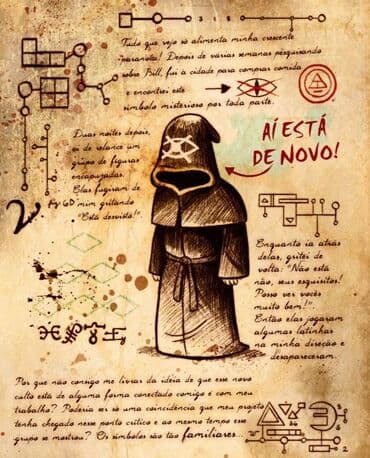 Tudo que vejo só alimenta minha crescente
paranoia! Depois de várias semanas pesquisando
sobre Bill, fui à cidade para comprar comida
e encontrei este
símbolo misterioso por toda parte.
AÍ ESTÁ
DE NOVO!
Duas noites depois,
eu de relance um
grupo de figuras
encapuzadas.
Elas fugiram de
mim gritando
"Está desvisto!".
Enquanto ia atrás
delas, gritei de
volta: "Não está
não, seus esquisitos!
Posso ver vocês
muito bem!"
Então elas jogaram
algumas latinhas
na minha direção e
desapareceram.
Por que não consigo me livrar da ideia de que esse novo
culto está de alguma forma conectado comigo e com meu
trabalho? Poderia ser só uma coincidência que meu projeto
tenha chegado nesse ponto crítico e ao mesmo tempo esse
grupo se mostrou? Os símbolos são tão familiares...